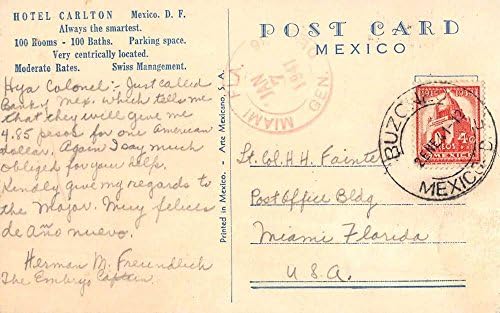 HOTEL CARLTON Mexico. D. F.
Always the smartest.
100 Rooms - 100 Baths. Parking space.
Very centrically located.
Moderate Rates. Swiss Management.
Hya Colonel:- Just called
Banky Mex. which tells me
that they will give me
4.85 pesos for one American
dollar. Again I say much
obliged for your help.
Kindly give my regards to
the Major. Muy felices
de Año nuevo.
Herman M. Freundlich
The Embryo Captain
Printed in Mexico. - Arte Mexicano, S. A.
POST CARD
MEXICO
MIAMI, FLA.
JAN
7
1941
GEN.
BUZON
2 ENE
MEXICO D.
4c
MEXICO
Lt. Col. H. H. Fainter
Post Office Bldg
Miami Florida
U.S.A.